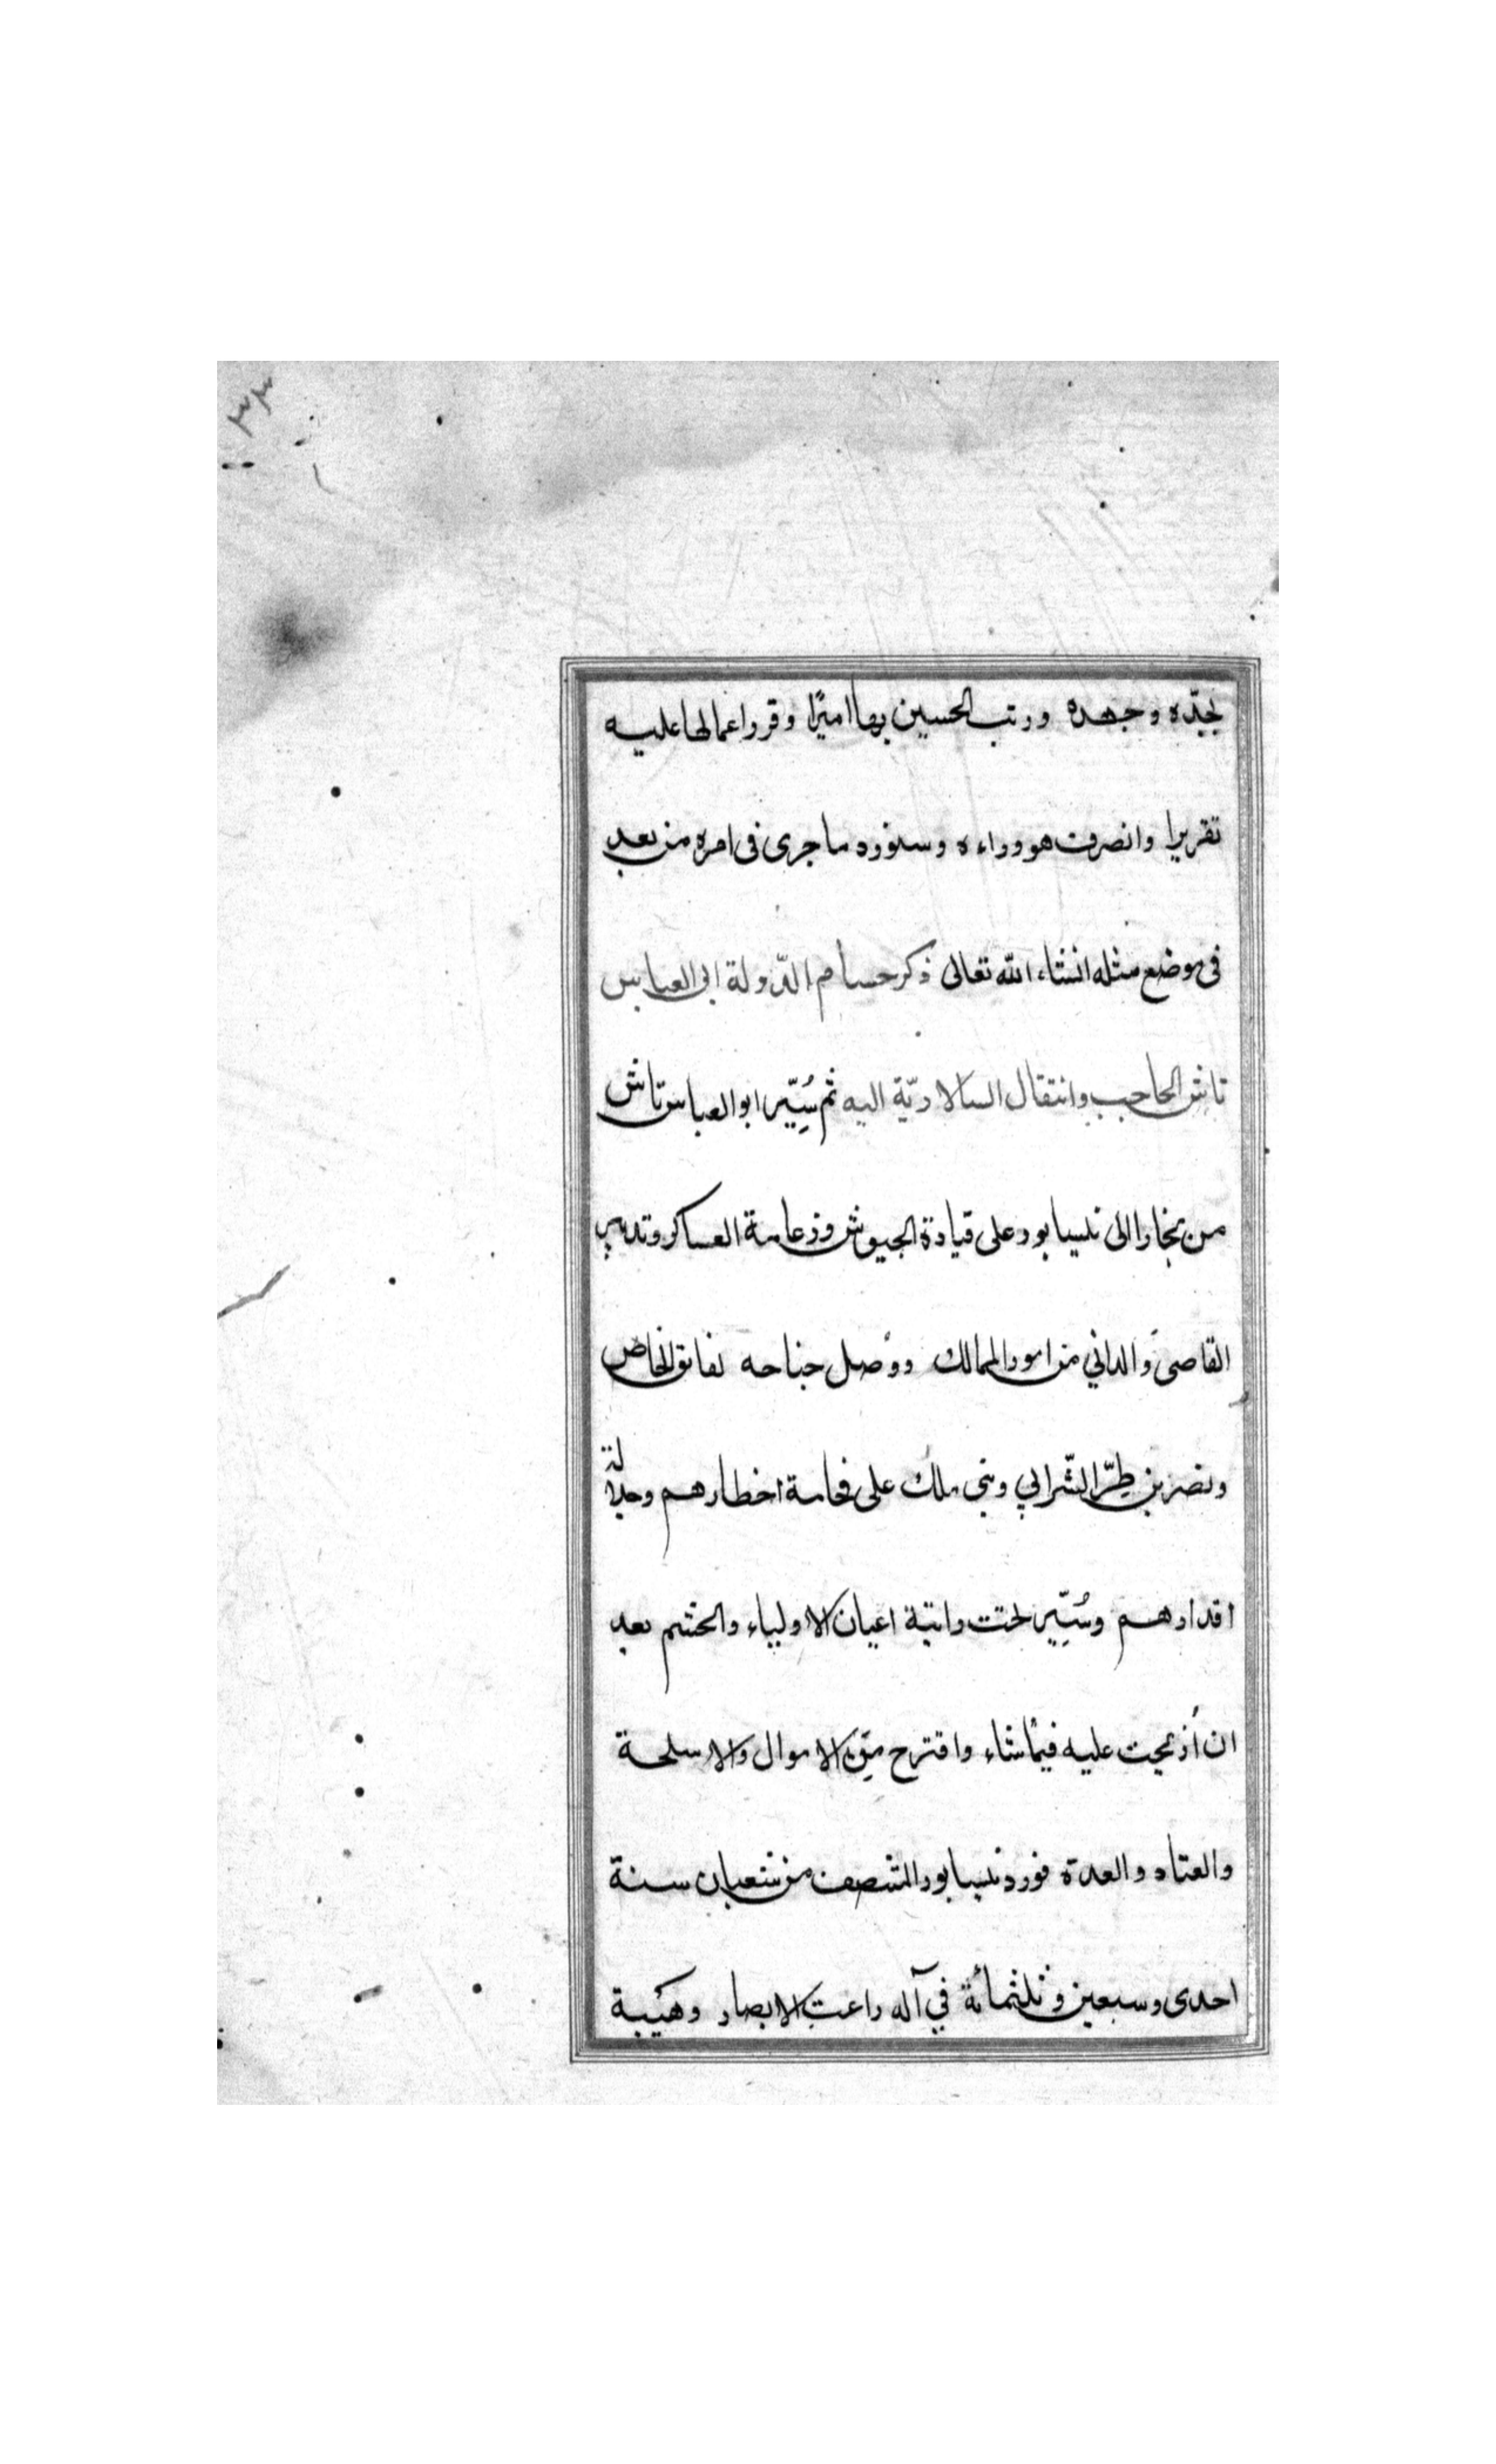 ٣٣
بجدّه وجهده ورتب الحسين بها اميرًا وقرر اعمالها عليه
تقريرا وانصرف هو وراءه وسنورد ما جرى فى امره من بعد
فى موضع مثله انشاء الله تعالى ذكر حسام الدّولة ابى العباس
تاش الحاجب وانتقال السالاريّة اليه ثم سُيِّر ابو العباس تاش
من بخارا الى نيسابور على قيادة الجيوش وزعامة العساكر وتدبير
القاصى والدانى من امور الممالك ووُصل جناحه بفايق الخاص
ونصر بن طِرّ الشّرابي وبنى ملك على فخامة اخطارهم وجلالة
اقدارهم وسُيِّر تحت رايته اعيان الاولياء والحشم بعد
ان اُزيحت عليه فيما شاء واقترح مِن الاموال والاسلحة
والعتاد والعدة فورد نيسابور المنتصف من شعبان سنة
احدى وسبعين وثلثمائة في آله راعتِ الابصار وهيبة